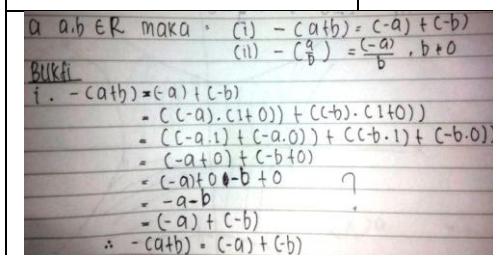 a a,b ∈ R maka : (i) - (a+b) = (-a) + (-b)
(ii) - (a/b) = (-a)/b , b ≠ 0
Bukti
i. - (a+b) = (-a) + (-b)
= ((-a).(1+0)) + ((-b).(1+0))
= ((-a.1) + (-a.0)) + ((-b.1) + (-b.0))
= (-a+0) + (-b+0)
= (-a)+0 -b +0 ?
= -a-b
= (-a) + (-b)
∴ -(a+b) = (-a) + (-b)